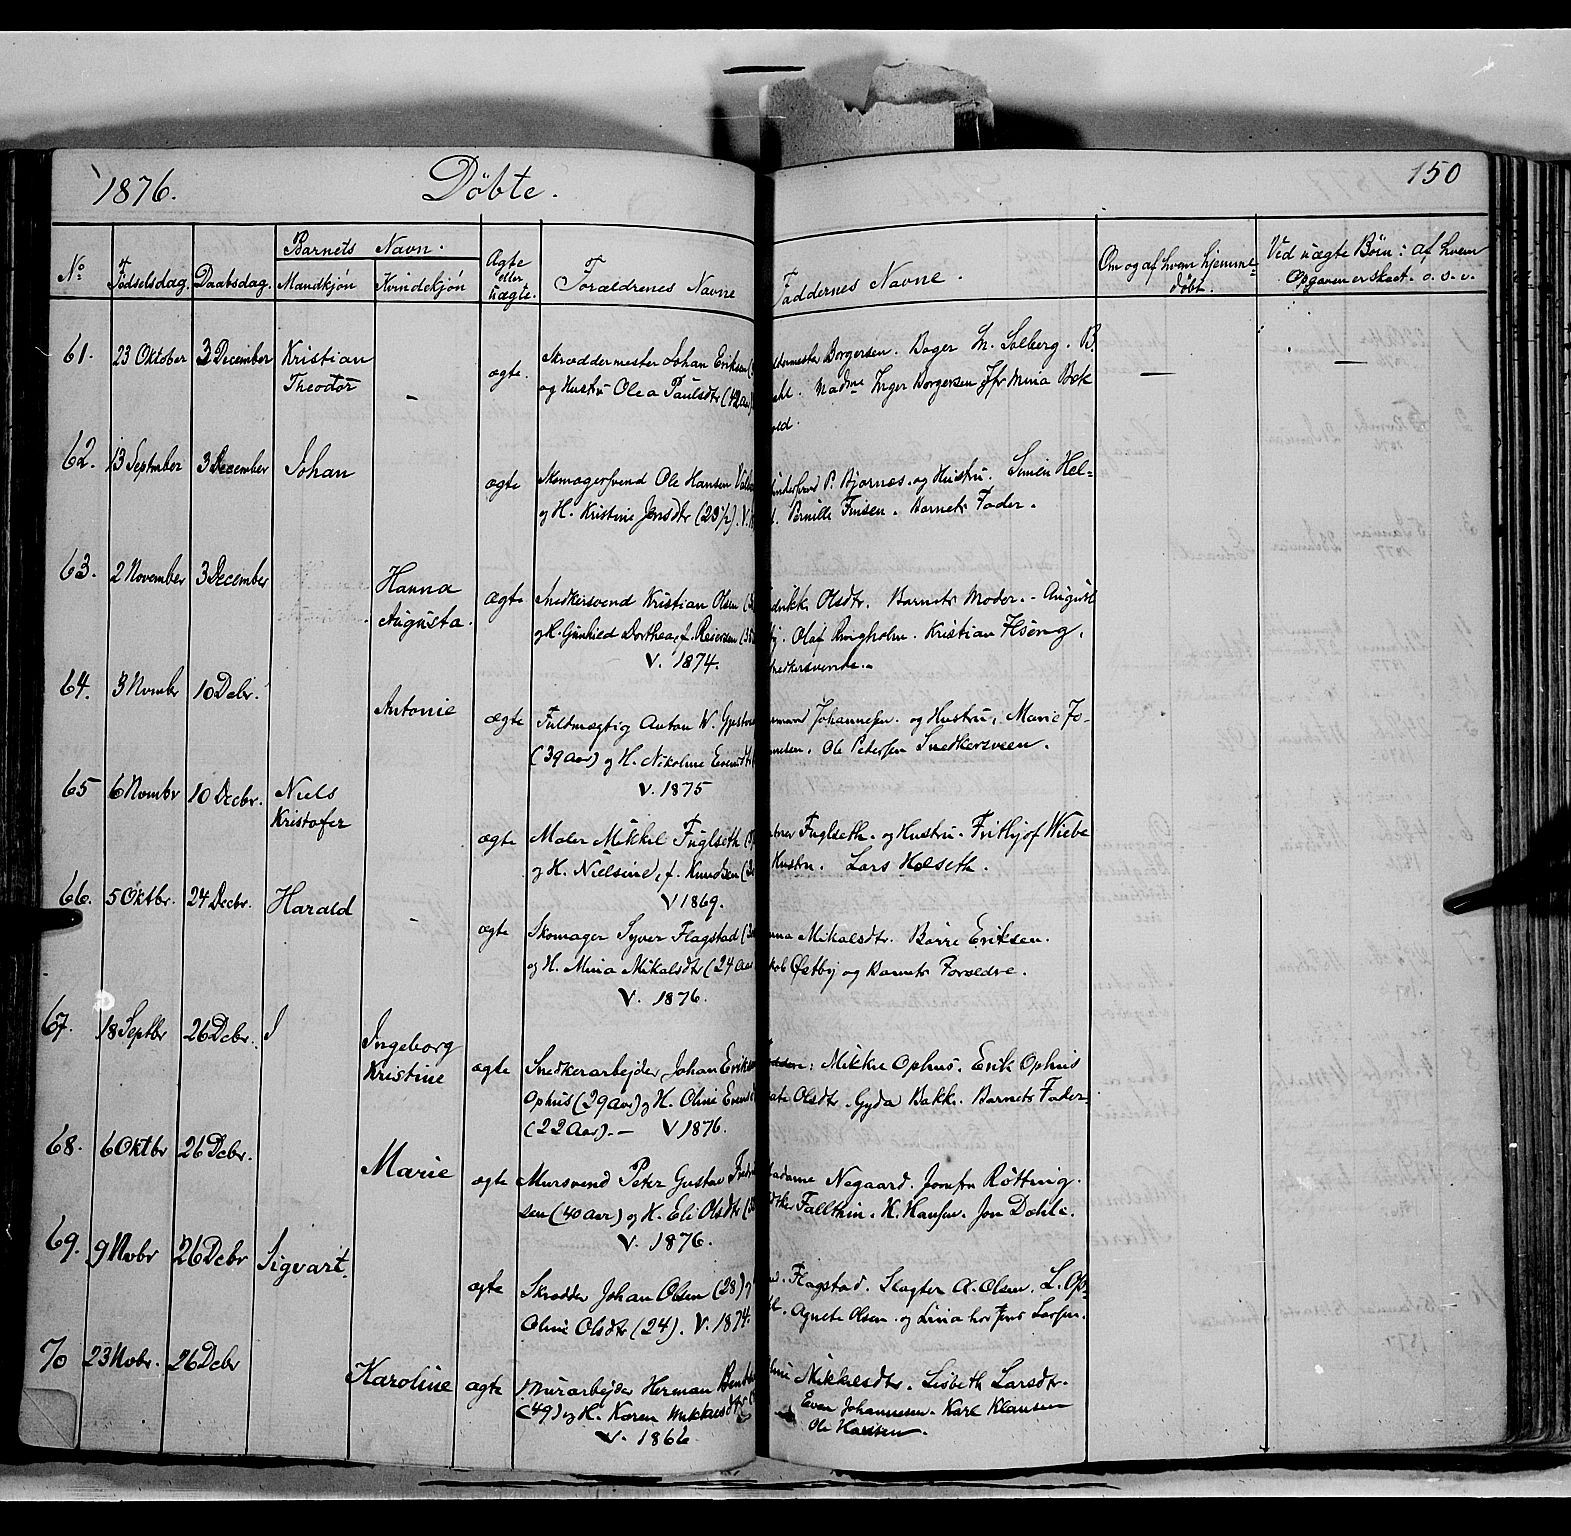 1876.
Döbte.
150
No
Födselsdag.
Daabsdag.
Barnets Navn.
Mandkjön
Kvindekjön
Ægte eller uægte.
Forældrenes Navne
Faddernes Navne.
Om og af hvem hjemmedöbt.
Ved uægte Börn: af hvem Opgaven er skeet. o.s.v.
61. 23 Oktober 3 December Kristian Theodor - ægte.
Skræddermester Johan Eriksen
og Hustru Olea Paulsdtr (42 Aar)
Borgersen. Bager M. Solberg. B.
Madme Inger Borgersen Jfr Mina Bæk
62. 13 September 3 December Johan ægte
Skomagersvend Ole Hansen
og H. Kristine Jensdtr (23 1/2). V.
P. Bjornes. og Hustru. Simen Hel-
Pernille Finsen. Barnets Fader.
63. 2 November 3 December Hanna Augusta. ægte
Snedkersvend Kristian Olsen
og H. Gunhild Dorthea, f. Reiersen
V. 1874.
Olsdtr. Barnets Moder. - August
Olaf Ringholm. Kristian Hseng,
snedkersvende.
64. 3 Novmbr 10 Debr. Antonie ægte
Fuldmægtig Anton W.
(39 Aar) og H. Nikoline Evensdtr
V. 1875
Johannesen. og Hustru, Marie Jo-
Ole Petersen Snedkersveen.
65 6 Novmbr 10 Decbr. Niels Kristofer ægte
Maler Mikkel Fuglseth
og H. Nielsine, f. Knudsen
V 1869.
Fuglseth. og Hustru. Frithjof Wiebe
Hustru. Lars Holseth.
66. 5 Oktbr. 24 Decbr. Harald - ægte
Skomager Syver Flagstad
og H. Mina Mikalsdtr (24 Aar
V. 1876.
Mikalsdtr. Börre Eriksen.
Østby og Barnets Forældre.
67. 18 Septbr 26 Debr. Ingeborg Kristine ægte
Snedkerarbejder Johan
Ophus (29 Aar) og H. Oline
(22 Aar). - V 1876.
Mikkel Ophus. Erik Ophus
Olsdtr. Gyda Bakke. Barnets Fader
68. 6 Oktbr 26 Debr. Marie ægte
Mursvend Peter Gustav
sen (40 Aar) og H. Eli Olsdtr
V. 1876.
Madame Negaard. Jomfru Rötting.
Fallthin. K. Hansen. Jon Dahle.
69. 9 Novbr 26 Debr Sigvart. ægte
Skrædder Johan Olsen (28) og
Oline Olsdtr (24). V. 1874.
Flagstad. Slagter A. Olsen. L. Op-
Agnete Olsen. og Lina hos Jens Larsen.
70 23 Novbr. 26 Debr Karoline ægte
Murarbejder Herman
(49) og H. Karen Mikkelsdtr
V. 1866
Mikkelsdtr. Lisbeth Larsdtr.
Even Johannesen. Karl Klausen
Ole Hansen.